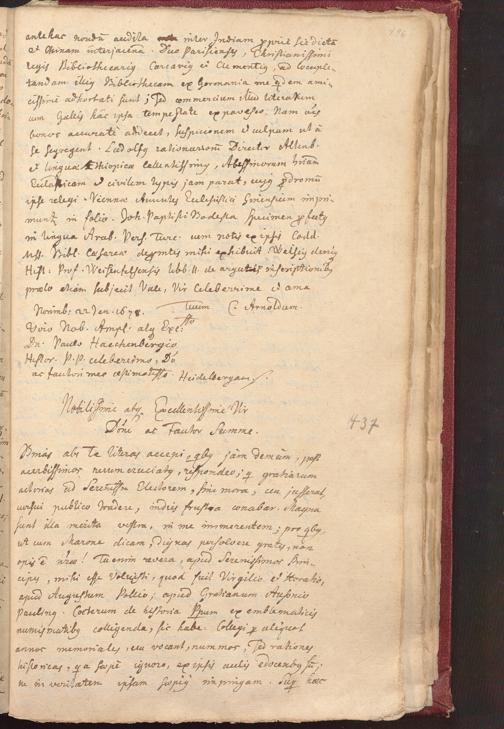 antehac nondum audita inter Indiam proprie sic dictam
et Chinam interjacena. Duo Parisienses, Christianissimi
regis Bibliothecarii, Carcavius et Clementius, ad locuple-
tandam illius Bibliothecam ex Germania me quidem ami-
cissime adhortati sunt; sed commercium literarium
cum Gallis hac ipsa tempestate expavesco. Nam
bonos accurate
se segregent. Ludolfus rationarum Director Altenb.
et linguae Aethiopicae callentissimus, Abessinorum
Ecclesiasticam et civilem typis jam parat, cujus prodromum
ipse relegi. Viennae Annales Ecclesiastici Graecorum impri-
muntur in folio. Joh. Baptista Podesta specimen
in lingua Arab. Pers. Turc. cum notis ex ipsis Codd.
Mss. Bibl. Caesareae mihi exhibuit. Weisius denique
Hist. Prof. Weissenfelsensis libb. II. de argutis inscriptionibus
praelo etiam subjecit. Vale, Vir Celeberrime et ama
Norimb. 22 Jan. 1678. Tuum C. Arnoldum.
Viro Nob. Ampl. atque Exc.
Dn. Paulo Hachenbergio
Histor. P. P. celeberrimo, Dno
ac fautori meo Heidelbergam.
Nobilissime atque Excellentissime Vir
Dne ac Fautor Summe.
437
Binas abs Te literas accepi, quibus jam demum, post
acerbissimos rerum cruciatus, respondeo; et gratiarum
actorias ad Sereniss. Electorem, sine mora, ceu jusseras,
cursui publico tradere, indies frustra conabar. Magna
sunt illa merita vestra, in me immerentem; pro quibus,
ut cum Marone dicam, dignas persolvere grates, non
opis est nostrae! Tu enim revera, apud Serenissimos Prin-
cipes, mihi esse voluisti, quod fuit Virgilio et Horatio,
apud Augustum Pollio; apud Gratianum Ausonio
Paulinus. Coeterum de historia ex emblematicis
numismatibus colligenda, sic habe. Collegi aliquot
annos memoriales, ceu vocant, nummos; sed rationes
historicas, quas ignoro, ex ipsis aulis edocendus sum;
ne in veritatem ipsam impingam. haec